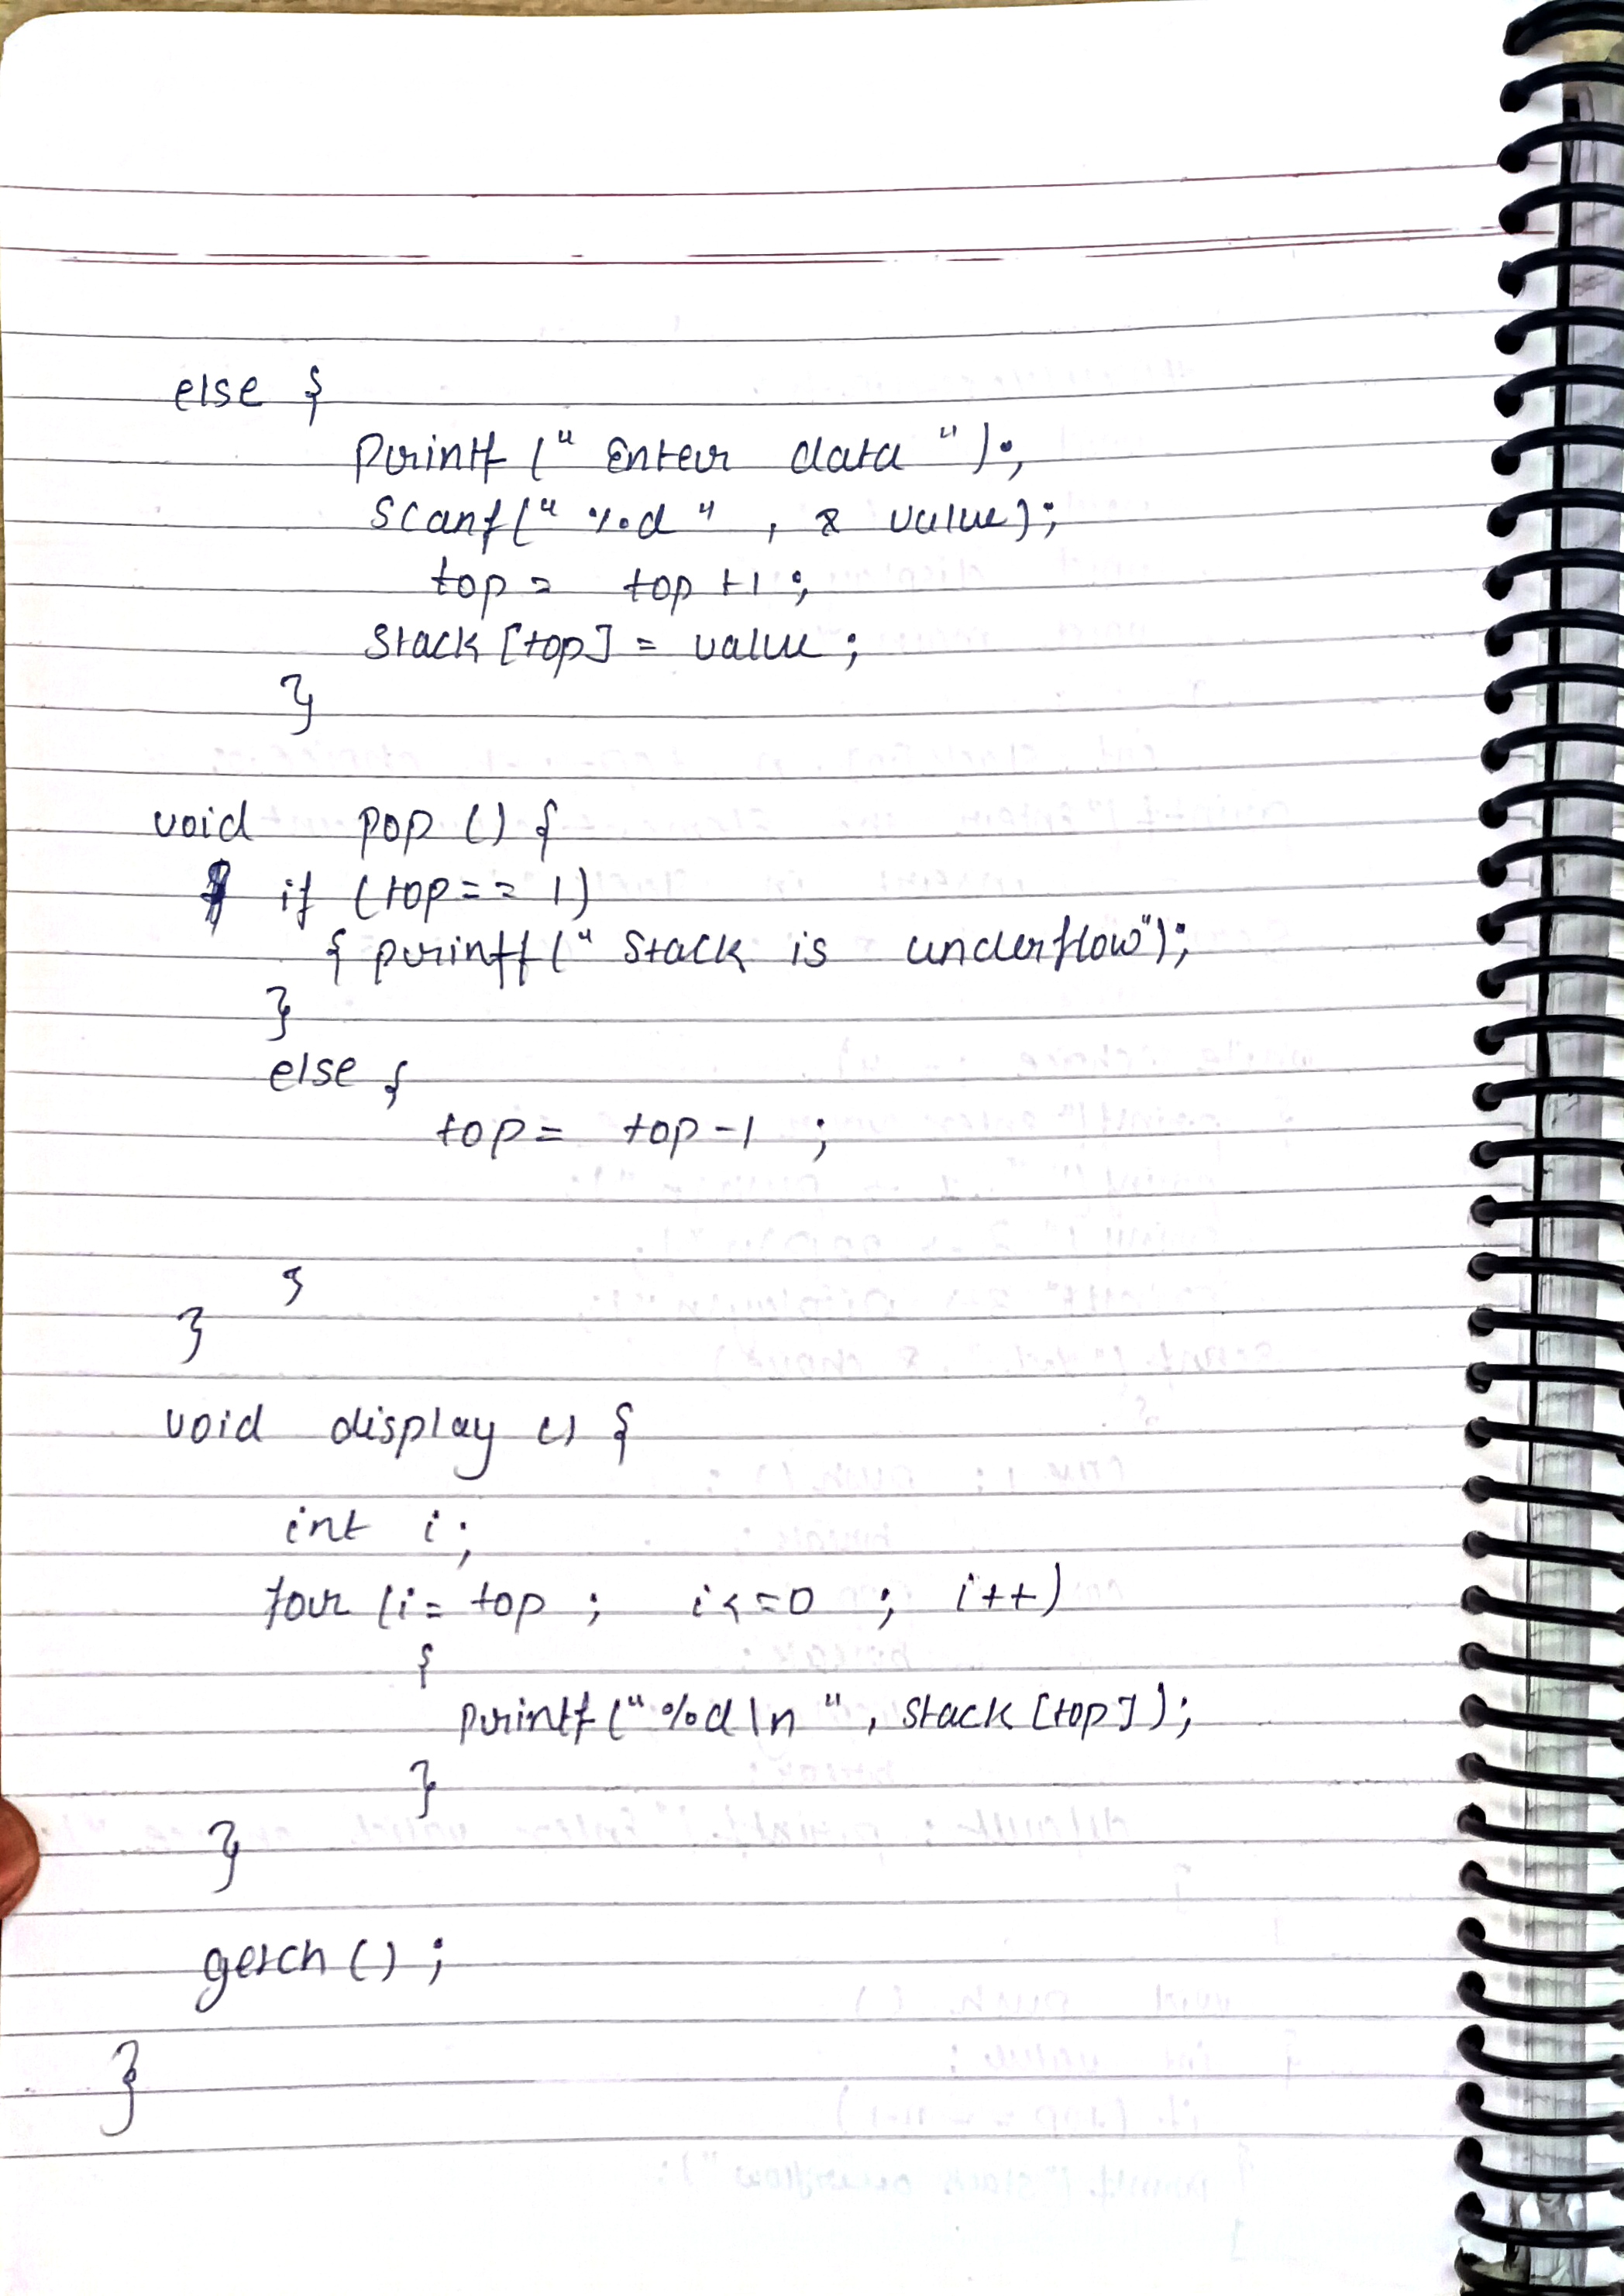 else {
printf (" Enter data ");
scanf(" %d " , & value);
top = top +1 ;
Stack [top] = value ;
}
void pop () {
if (top== 1)
{ printf(" Stack is underflow");
}
else {
top = top -1 ;
}
}
void display () {
int i ;
for (i = top ; i <=0 ; i ++)
{
printf (" %d \n " , Stack [top] );
}
}
getch () ;
}